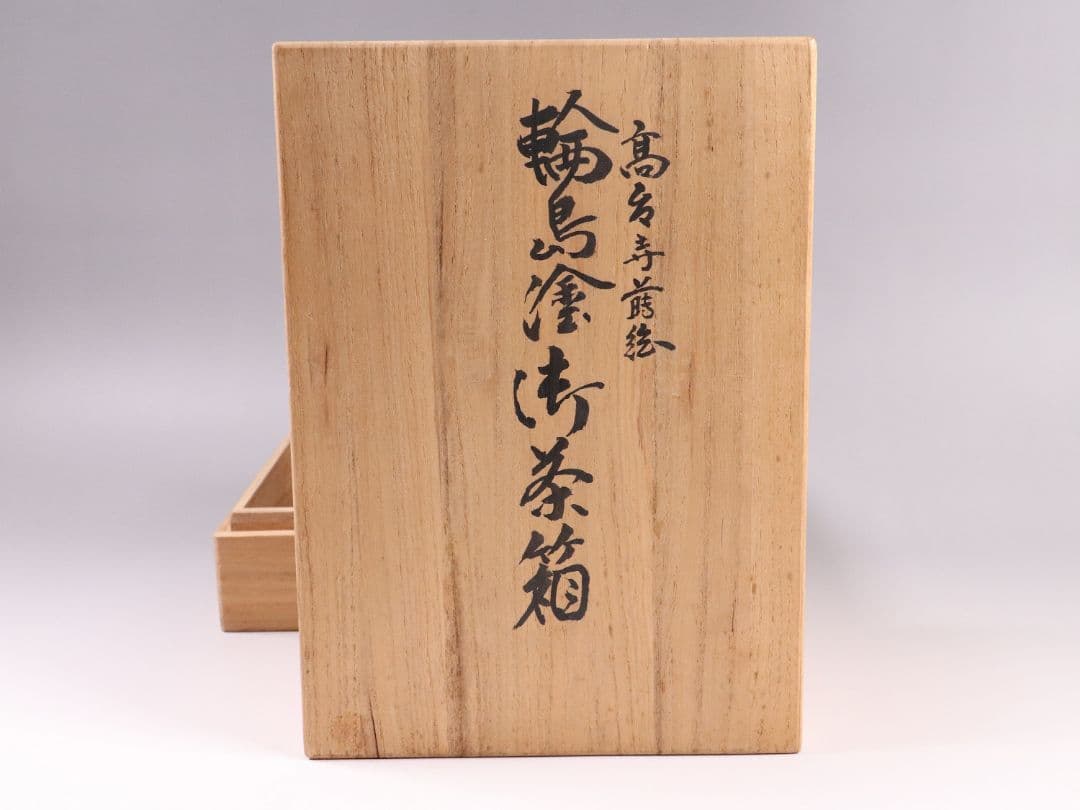 高台寺蒔絵
輪島塗御茶箱